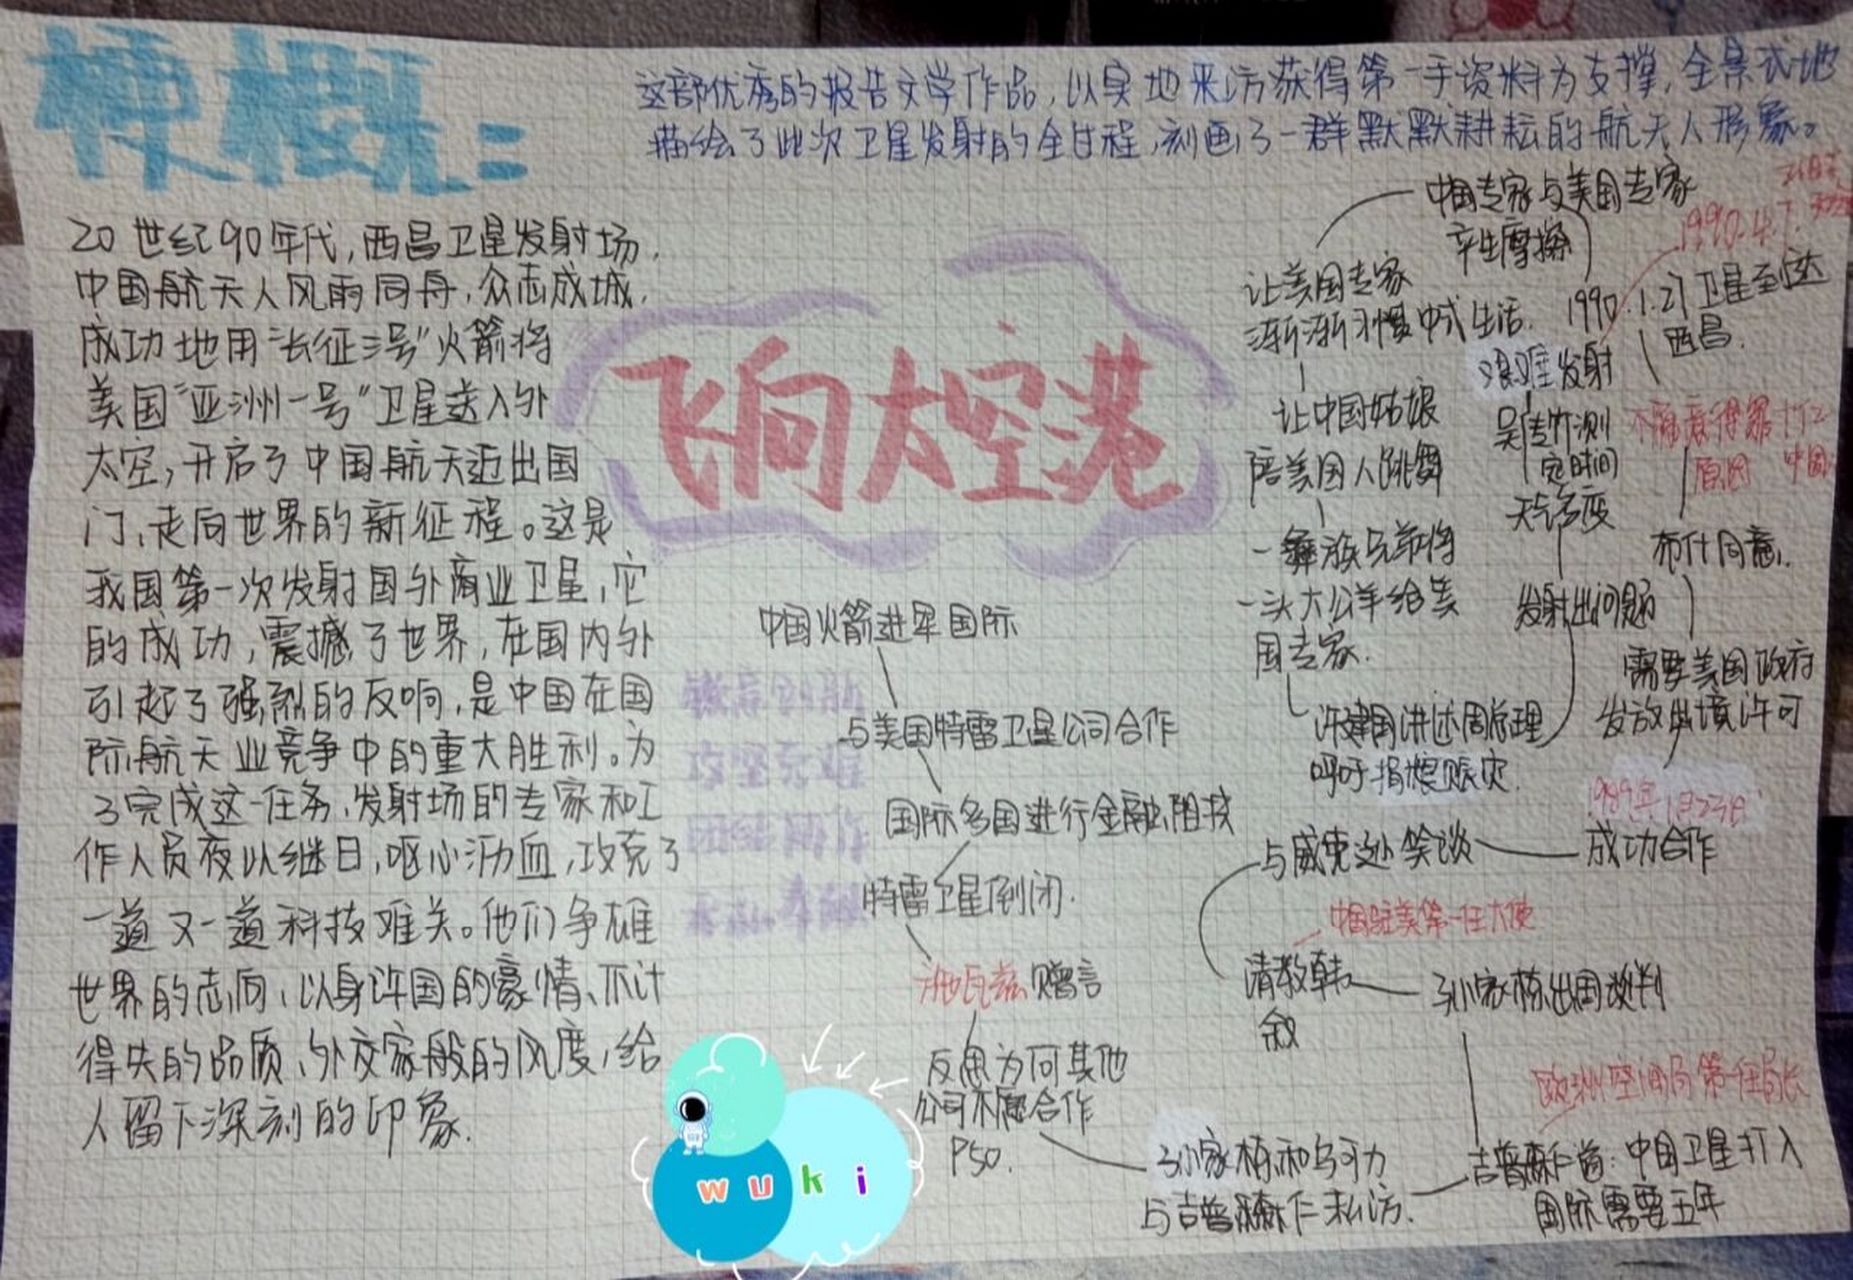 梗概:
这部优秀的报告文学作品,以实地来访获得第一手资料为支撑,全景式地
描绘了此次卫星发射的全过程,刻画了一群默默耕耘的航天人形象。
20世纪90年代,西昌卫星发射场,
中国航天人风雨同舟,众志成城,
成功地用"长征三号"火箭将
美国"亚洲一号"卫星送入外
太空,开启了中国航天迈出国
门,走向世界的新征程。这是
我国第一次发射国外商业卫星,它
的成功,震撼了世界,在国内外
引起了强烈的反响,是中国在国
际航天业竞争中的重大胜利。为
了完成这一任务,发射场的专家和工
作人员夜以继日,呕心沥血,攻克了
一道又一道科技难关。他们争雄
世界的志向,以身许国的豪情、不计
得失的品质、外交家般的风度,给
人留下深刻的印象.
飞向太空港
中国火箭进军国际
与美国特雷卫星公司合作
国际多国进行金融阻拔
特雷卫星倒闭.
赠言
反思为何其他
公司不愿合作
P50.
孙家栋和乌可力
与吉普森仁私访.
吉普森仁首:中国卫星打入
国际需要五年
欧洲空间局第一任局长
孙家栋出国谈判
请教韩
叙
中国驻美第一任大使
与威克逊笑谈
成功合作
1989年1月23日
需要美国政府
发放出境许可
布什同意.
不愿意得罪
原因 中国
1990.1.21卫星到达
西昌.
1990.4.7.
中国专家与美国专家
产生摩擦
让美国专家
渐渐习惯中式生活.
让中国姑娘
陪美国人跳舞
一彝族兄弟将
一头大公羊给美
国专家.
许建国讲述周总理
呼吁捐粮赈灾.
发射出问题
天气多变
吴传竹测
定时间
艰难发射
wuki